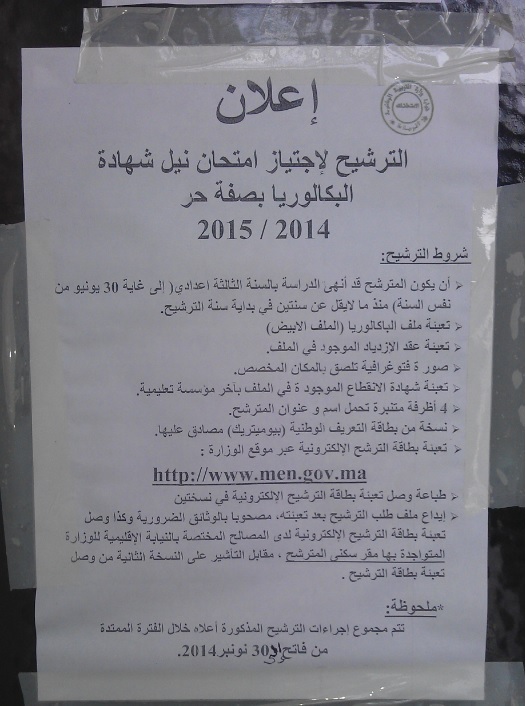 إعلان
الترشيح لإجتياز امتحان نيل شهادة
البكالوريا بصفة حر
2015 / 2014
شروط الترشيح:
أن يكون المترشح قد أنهى الدراسة بالسنة الثالثة اعدادي( إلى غاية 30 يونيو من
نفس السنة) منذ ما لايقل عن سنتين في بداية سنة الترشيح.
تعبئة ملف الباكالوريا (الملف الابيض)
تعبئة عقد الازدياد الموجود في الملف.
صور ة فتوغرافية تلصق بالمكان المخصص.
تعبئة شهادة الانقطاع الموجود ة في الملف بآخر مؤسسة تعليمية.
4 أظرفة متنبرة تحمل اسم و عنوان المترشح.
نسخة من بطاقة التعريف الوطنية (بيوميتريك) مصادق عليها.
تعبئة بطاقة الترشح الإلكترونية عبر موقع الوزارة :
http://www.men.gov.ma
طباعة وصل تعبئة بطاقة الترشيح الإلكترونية في نسختين
إيداع ملف طلب الترشيح بعد تعبئته، مصحوبا بالوثائق الضرورية وكذا وصل
تعبئة بطاقة الترشيح الإلكترونية لدى المصالح المختصة بالنيابة الإقليمية للوزارة
المتواجدة بها مقر سكنى المترشح ، مقابل التأشير على النسخة الثانية من وصل
تعبئة بطاقة الترشيح .
*ملحوظة:
تتم مجموع إجراءات الترشيح المذكورة أعلاه خلال الفترة الممتدة
من فاتح 30 نونبر 2014.